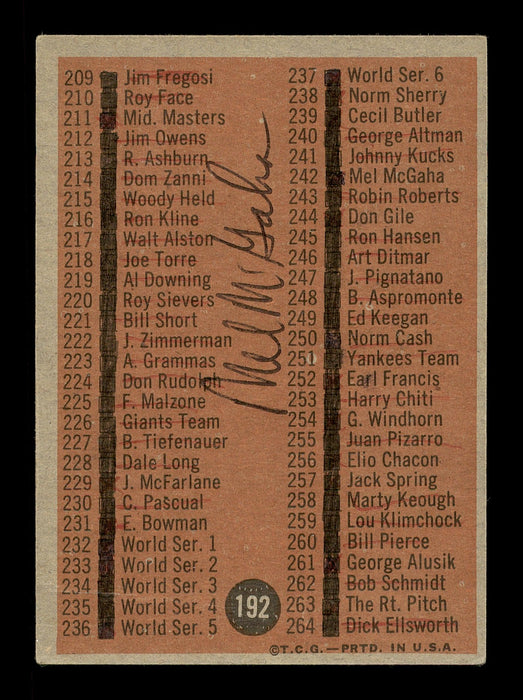 209 Jim Fregosi
210 Roy Face
211 Mid. Masters
212 Jim Owens
213 R. Ashburn
214 Dom Zanni
215 Woody Held
216 Ron Kline
217 Walt Alston
218 Joe Torre
219 Al Downing
220 Roy Sievers
221 Bill Short
222 J. Zimmerman
223 A. Grammas
224 Don Rudolph
225 F. Malzone
226 Giants Team
227 B. Tiefenauer
228 Dale Long
229 J. McFarlane
230 C. Pascual
231 E. Bowman
232 World Ser. 1
233 World Ser. 2
234 World Ser. 3
235 World Ser. 4
236 World Ser. 5
Mel McGaha
192
237 World Ser. 6
238 Norm Sherry
239 Cecil Butler
240 George Altman
241 Johnny Kucks
242 Mel McGaha
243 Robin Roberts
244 Don Gile
245 Ron Hansen
246 Art Ditmar
247 J. Pignatano
248 B. Aspromonte
249 Ed Keegan
250 Norm Cash
251 Yankees Team
252 Earl Francis
253 Harry Chiti
254 G. Windhorn
255 Juan Pizarro
256 Elio Chacon
257 Jack Spring
258 Marty Keough
259 Lou Klimchock
260 Bill Pierce
261 George Alusik
262 Bob Schmidt
263 The Rt. Pitch
264 Dick Ellsworth
©T.C.G.—PRTD. IN U.S.A.